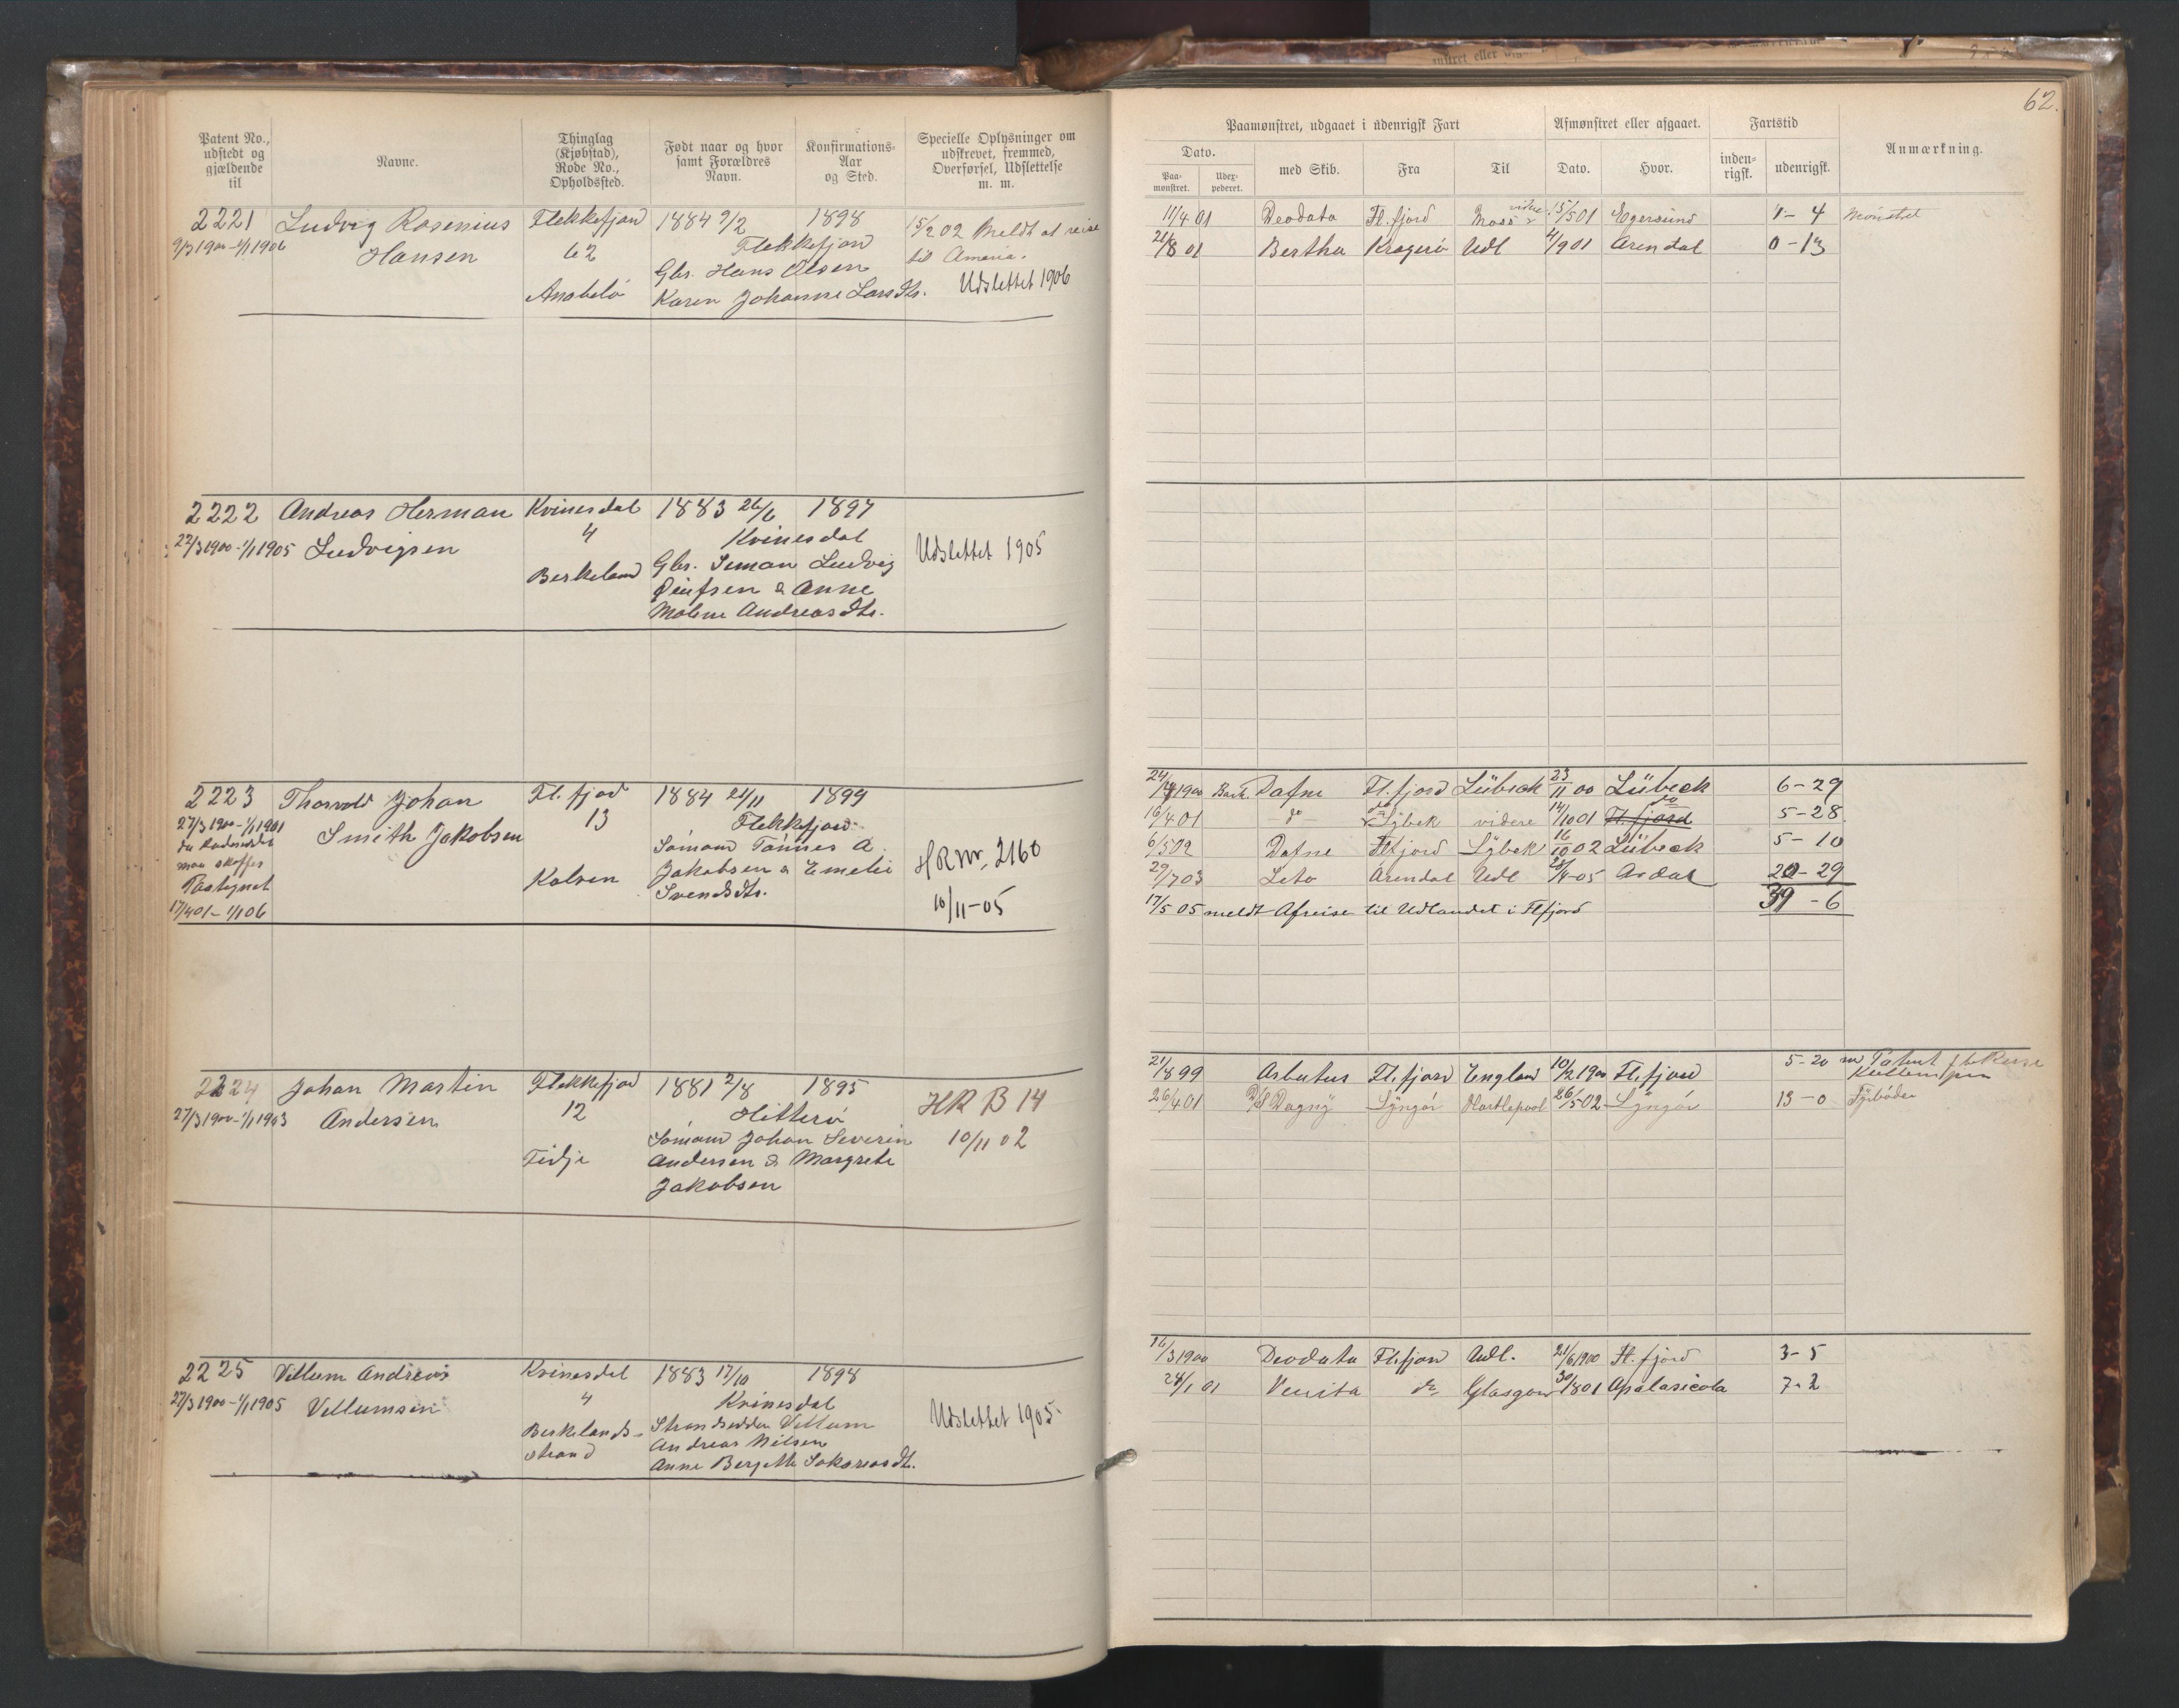 62.
Patent No., udstedt og gjældende til
Navne.
Thinglag (Kjøbstad), Rode No., Opholdssted.
Født naar og hvor samt Forældres Navn.
Konfirmations-Aar og Sted.
Specielle Oplysninger om udskrevet, fremmed, Overførsel, Udslettelse m. m.
Paamønstret, udgaaet i udenrigsk Fart
Dato.
Paa-mønstret.
Udex-pederet.
med Skib.
Fra
Til
Afmønstret eller afgaaet.
Dato.
Hvor.
Fartstid
inden-rigsk.
udenrigsk.
Anmærkning.
2221 Ludvig Rosenius Flekkefjord 1884 9/2 1898 15/2 02 Meldt at reise
9/3 1900 - 1/1 1906 Hansen 62 Flekkefjord til
Gbr. Hans Olsen
Anabelø Karen Johanne Larsdtr. Udslettet 1906
11/4 01 Deodata Fl.fjord Moss videre 15/5 01 Egersund 1-4
21/8 01 Bertha Kragerö Udl 4/9 01 Arendal 0-13
2222 Andreas Herman Kvinesdal 1883 26/6 1897
27/3 1900 - 1/1 1905 Ludvigsen 4 Kvinesdal
Berkeland Gbr. Seman Ludvig Udslettet 1905
& Anne
Malene Andreasdtr.
2223 Thorvald Johan Fl.fjord 1884 21/11 1899
27/3 1900 - 1/1 1901 Smith Jakobsen 13 Flekkefjord
Sömand Tönnes A.
Jakobsen & Emelie HR Nr. 2160
Svendsdtr.
17/4 01 - 1/1 06 10/11-05
Bark. Dafne Fl.fjord Lübeck 23/11 00 Lübeck 6-29
16/4 01 - do - Lybek videre 14/10 01 Fl.fjord do 5-28
6/5 02 Dafne Flfjord Lybek 16/10 02 Lübeck 5-10
29/7 03 Leto Arendal Udl 28/4-05 Ardal 20-29
17/5 05 meldt Afreise til Udlandet i Flfjord 39-6
2224 Johan Martin Flekkefjord 1881 2/8 1895 HR B 14
27/3 1900 - 1/1 1903 Andersen 12 Hitterö
Sömand Johan Severin 10/11 02
Fidje Andersen & Margrete
Jakobsen
21/8 99 Arbutus Fl.fjord England 10/2 1900 Fl.fjord 5-20 Patent
26/4 01 D/S Dagny Lyngör Hartlepool 26/5 02 Lyngör 13-0 Fyrböder
2225 Villum Andreas Kvinesdal 1883 17/10 1898
27/3 1900 - 1/1 1905 Villumsen 4 Kvinesdal
Berkelands- Strandsidder Villum Udslettet 1905.
strand Andreas Nilsen
Anne Bergitte Sakariasdtr.
16/3 1900 Deodata Fl.fjord Udl. 21/6 1900 Fl.fjord 3-5
24/1 01 Venita do Glasgow 30/8 01 Apalasicola 7-2